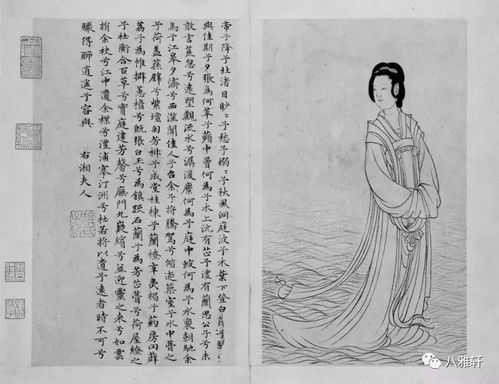 帝子降兮北渚目眇〻兮愁予嫋〻兮秋風洞庭波兮木葉下登白薠兮騁望
與佳期兮夕張鳥何萃兮蘋中罾何為兮木上沅有芷兮澧有蘭思公子兮未
敢言荒忽兮遠望觀流水兮潺湲麋何為兮庭中蛟何為兮水裔朝馳余
馬兮江皋夕濟兮西澨聞佳人兮召余將騰駕兮偕逝築室兮水中葺之
兮荷蓋蓀壁兮紫壇匊芳椒兮成堂桂棟兮蘭橑辛夷楣兮葯房罔薜
荔兮為帷擗蕙櫋兮既張白玉兮為鎮疏石蘭兮為芳芷葺兮荷屋繚之
兮杜衡合百草兮實庭建芳馨兮廡門九嶷繽兮並迎靈之來兮如雲
捐余袂兮江中遺余褋兮澧浦搴汀洲兮杜若將以遺兮遠者時不可兮
驟得聊逍遙兮容與
右湘夫人
八雅轩